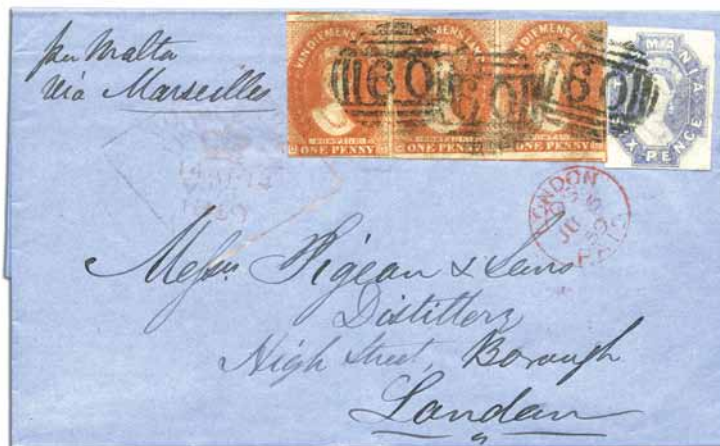 per Malta
via Marseilles
VAN DIEMENS LAND
ONE PENNY
60
VAN DIEMENS LAND
ONE PENNY
60
VAN DIEMENS LAND
ONE PENNY
60
MANIA
SIX PENCE
LONDON
JU
59
PAID
Messrs Pigeau & Sons
Distillers
High Street, Borough
London